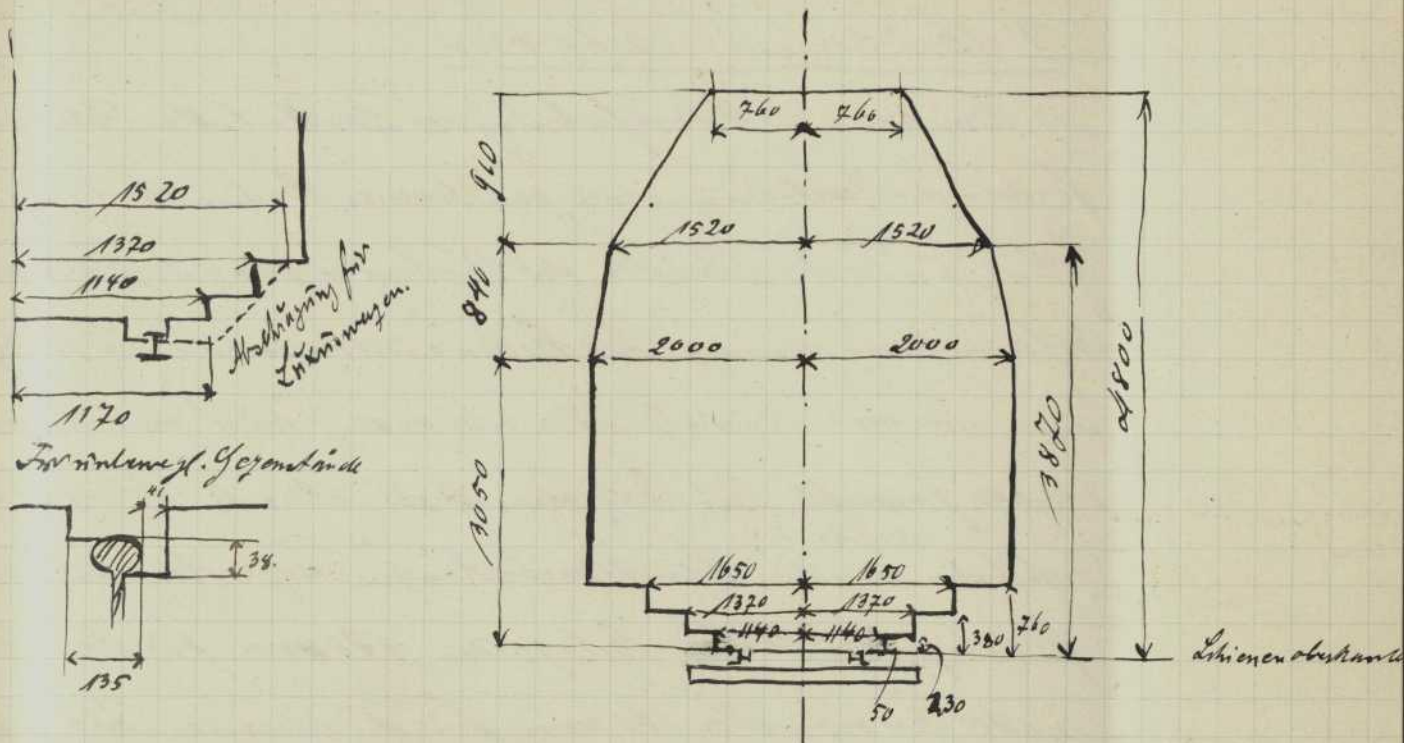 1520
1370
1140
Abschrägung für
Luxuswagen.
1170
Für unbewegl. Gegenstände
41
38.
135
760 760
910
1520 1520
840
2000 2000
3050
3870
4800
1650 1650
1370 1370
1140 1140
380
760
50
230
Schienenoberkante